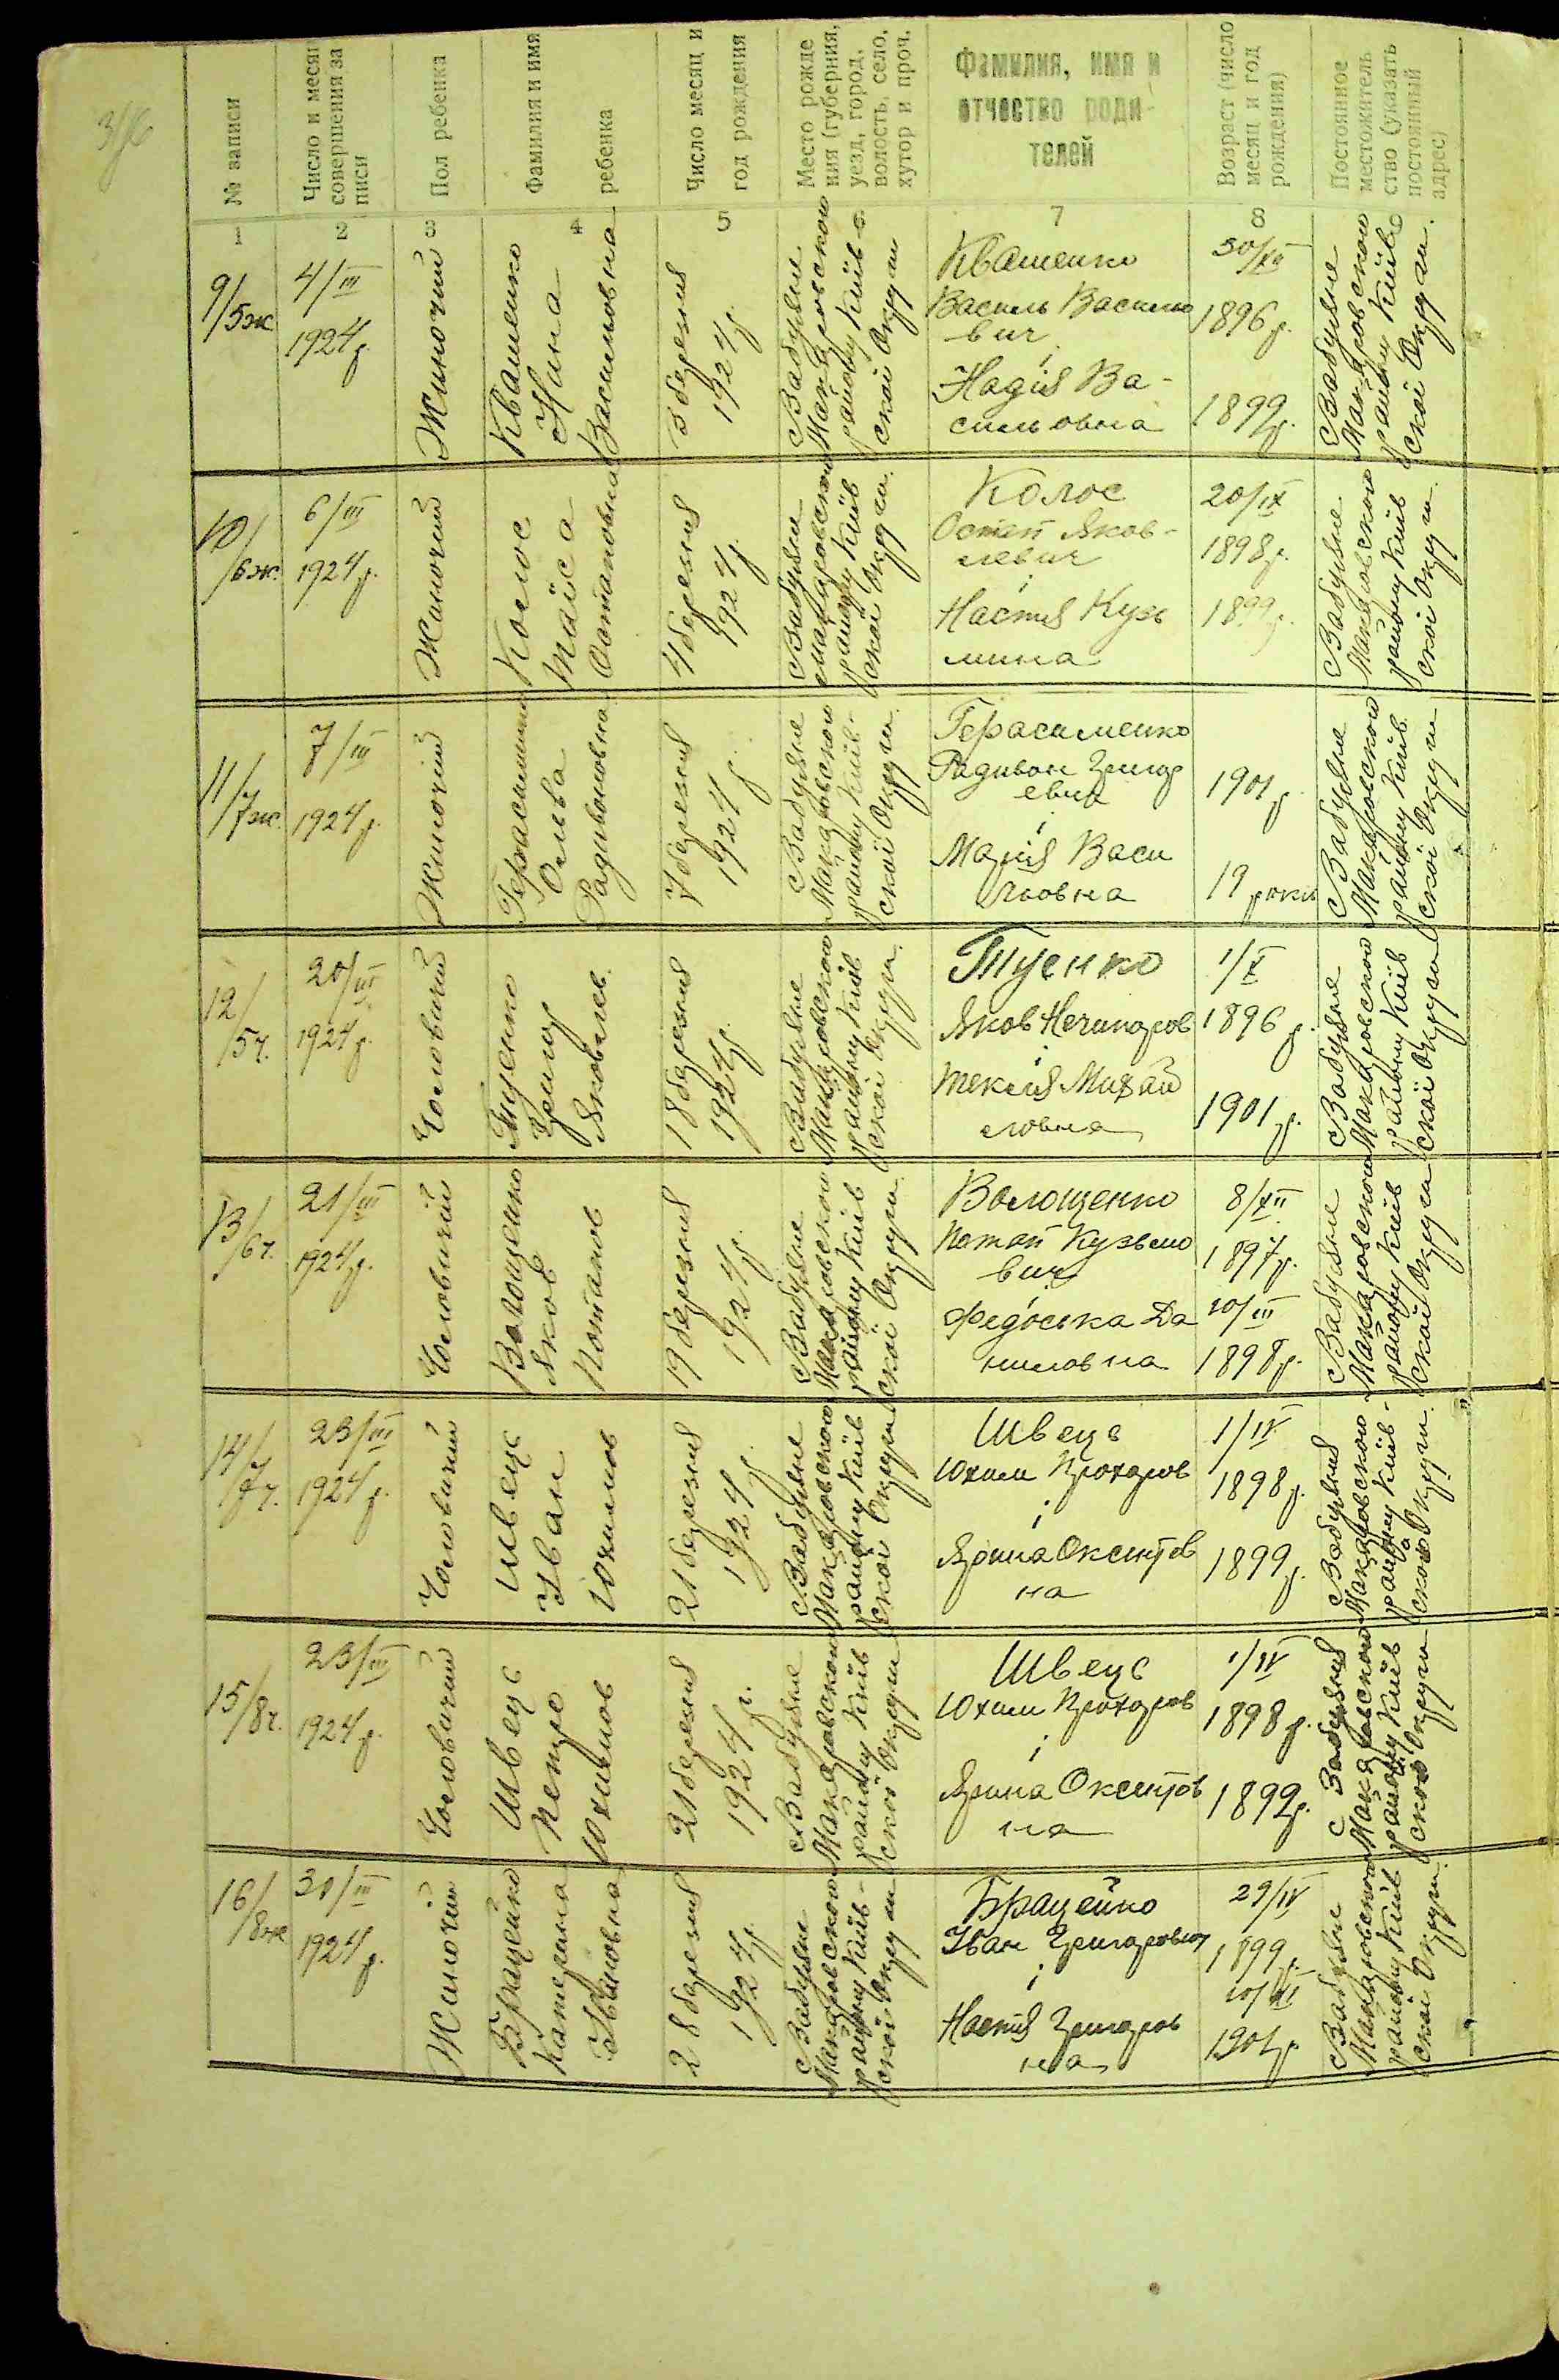 3/6
№ записи
Число и месяц
совершения за
писи
Пол ребенка
Фамилия и имя
ребенка
Число месяц и
год рождения
Место рожде
ния (губерния,
уезд, город,
волость, село,
хутор и проч.
Фамилия, имя и
отчество роди-
телей
Возраст (число
месяц и год
рождения)
Постоянное
местожитель
ство (указать
постоянный
адрес)
1
2
3
4
5
7
8
9/5ж
4/III
1924 р.
Жиночий
Квашенко
Нина
Васильовна
3 березня
1924 р.
с Забуяне
Макаровского
району Київ
скої Округи
Квашенко
Василь Василье
вич
і
Надія Ва-
сильовна
30/XII
1896 р.
1899 р.
с Забуяне
Макаровского
району Київ
скої Округи.
10/6ж.
6/III
1924 р.
Жиночий
Колос
Таїса
Остаповна
4 березня
1924 р.
с Забуяне
Макаровского
району Київ
скої Округи.
Колос
Остап Яков-
левич
і
Настя Кузь
мина
20/IX
1898 р.
1899 р.
с Забуяне
Макаровского
району Київ
скої Округи.
11/7ж.
7/III
1924 р.
Жиночий
Герасименко
Ольга
Радивоновна
7 березня
1924 р.
с Забуяне
Макаровского
району Київ-
скої Округи.
Герасименко
Радивон Григор
евич
і
Марія Васи
льовна
1901 р.
19 років
с Забуяне
Макаровского
району Київ
скої Округи
12/5ч.
20/III
1924 р.
Чоловичий
Тценко
Григор
Яковлев.
18 березня
1924 р.
с Забуяне
Макаровского
району Київ
скої Округи.
Яков Нечипоров
і
Текля Михай
ловна
1/X
1896 р.
1901 р.
с Забуяне
Макаровского
району Київ
скої Округи
13/6ч.
21/III
1924 р.
Чоловичий
Волощенко
Яков
Потапов
19 березня
1924 р.
с Забуяне
Макаровского
району Київ
скої Округи.
Волощенко
Потап Кузьмо
вич
і
Федоська Да
ниловна
8/XII
1897 р.
20/III
1898 р.
с Забуяне
Макаровского
району Київ
скої Округи
14/7ч.
23/III
1924 р.
Чоловичий
Швець
Іван
Юхимов
21 березня
1924 р.
с Забуяне
Макаровского
району Київ
скої Округи
Швець
Юхим Прохоров
і
Ярина Оксентов
на
1/IV
1898 р.
1899 р.
с Забуяння
Макаровского
району Київ-
скої Округи.
15/8ч.
23/III
1924 р.
Чоловичий
Швець
Петро
Юхимов
21 березня
1924 р.
с Забуяне
Макаровского
району Київ
скої Округи
Швець
Юхим Прохоров
і
Ярина Оксентов
на
1/IV
1898 р.
1899 р.
с Забуяння
Макаровского
району Київ
скої Округи
16/8ж
30/III
1924 р.
Жиночий
Брацейко
Катерина
Івановна
28 березня
1924 р.
с Забуяне
Макаровского
району Київ-
скої Округи
Брацейко
Іван Григорович
і
Настя Григоров
на
29/IV
1899 р.
1901 р.
с Забуяне
Макаровского
району Київ
скої Округи.